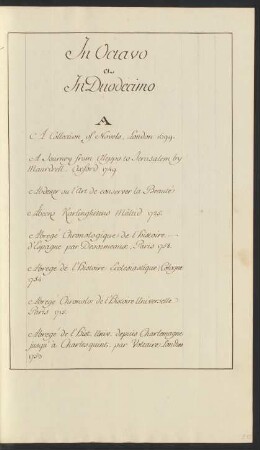 In Octavo
et
In Duodecimo
A
A Collection of Novels, London 1699.
A Journey from Aleppo to Jerusalem by
Maundrell. Oxford 1749.
Abdeker ou l'Art de conserver la Beauté
Abrégé Chronologique de l'histoire
d'Espagne par Desormeaux. Paris 1758.
Abregé de l'histoire Ecclesiastique, Cologne
1754.
Abregé Chronolog. de l'Histoire Universelle
Paris
Abregé de l'Hist. Univ. depuis Charlemagne
jusqu'à Charlequint, par Voltaire, London